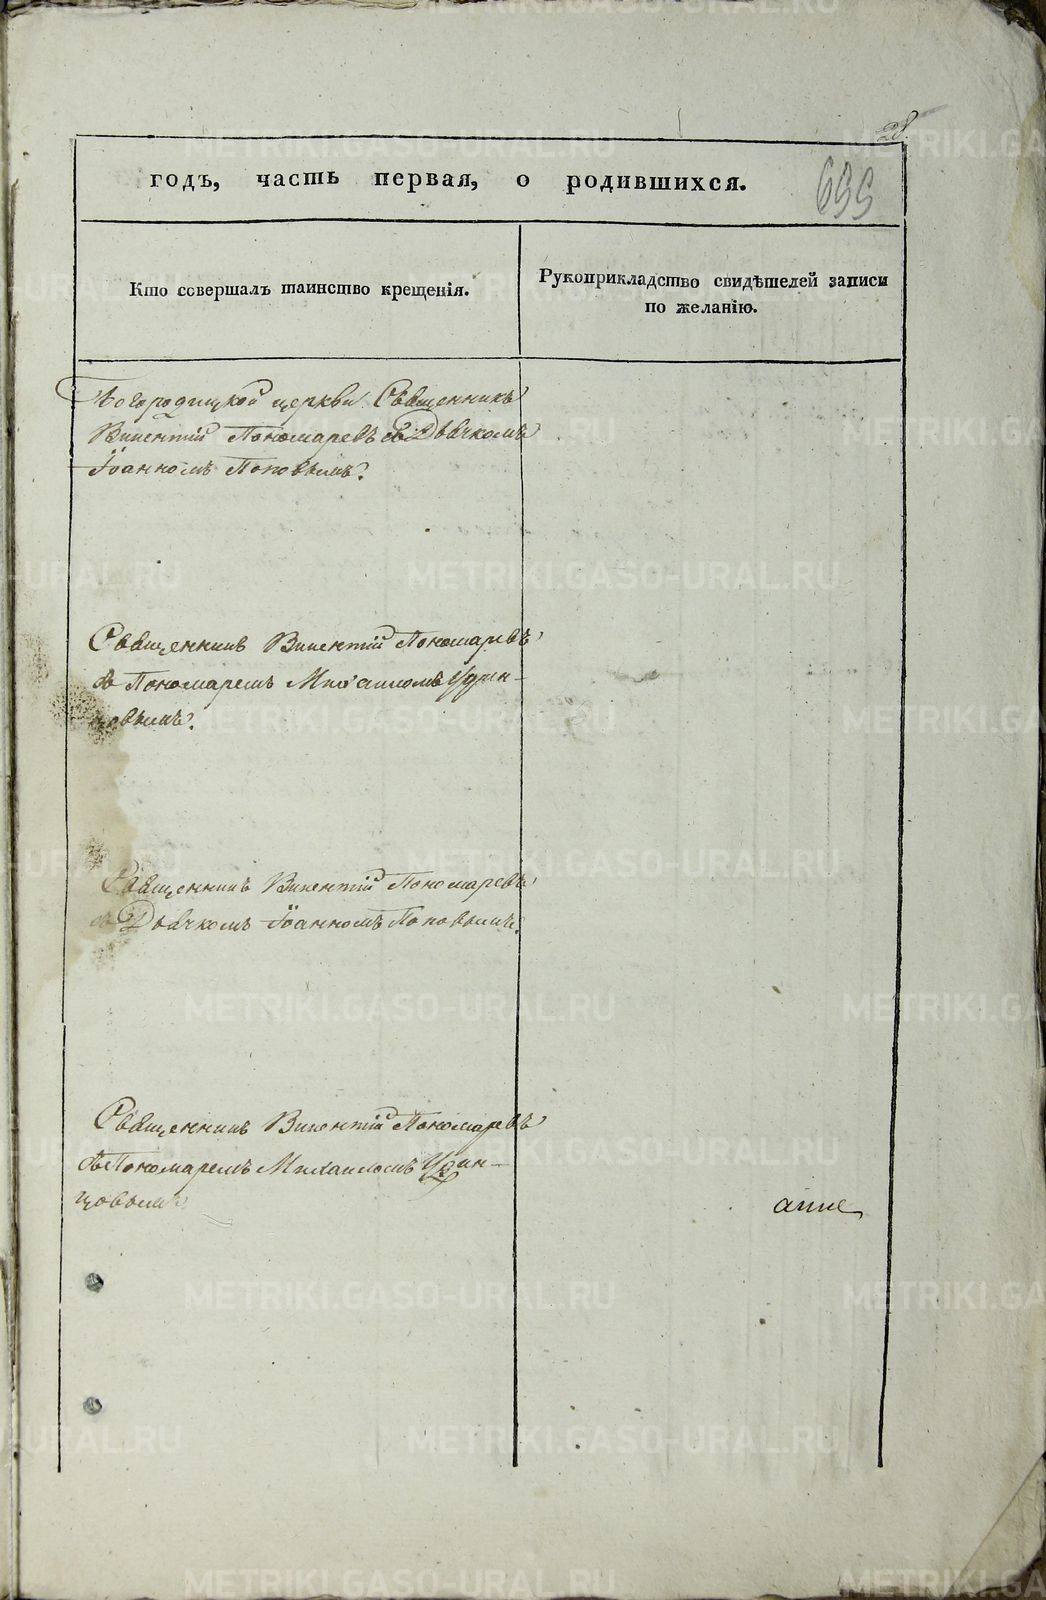 28.
годъ, часть первая, о родившихся.
699
Кто совершалъ таинство крещенія.
Рукоприкладство свидѣтелей записи
по желанію.
Богородицкой церкви Священникъ
Викентий Пономаревъ съ Дьячкомъ
Іоанномъ Поповымъ.
Священникъ Викентий Пономаревъ
съ Пономаремъ Михаиломъ Удин-
цовымъ.
Священникъ Викентий Пономаревъ
съ Дьячкомъ Іоанномъ Поповымъ.
Священникъ Викентий Пономаревъ
съ Пономаремъ Михаиломъ Удин-
цовымъ
METRIKI.GASO-URAL.RU